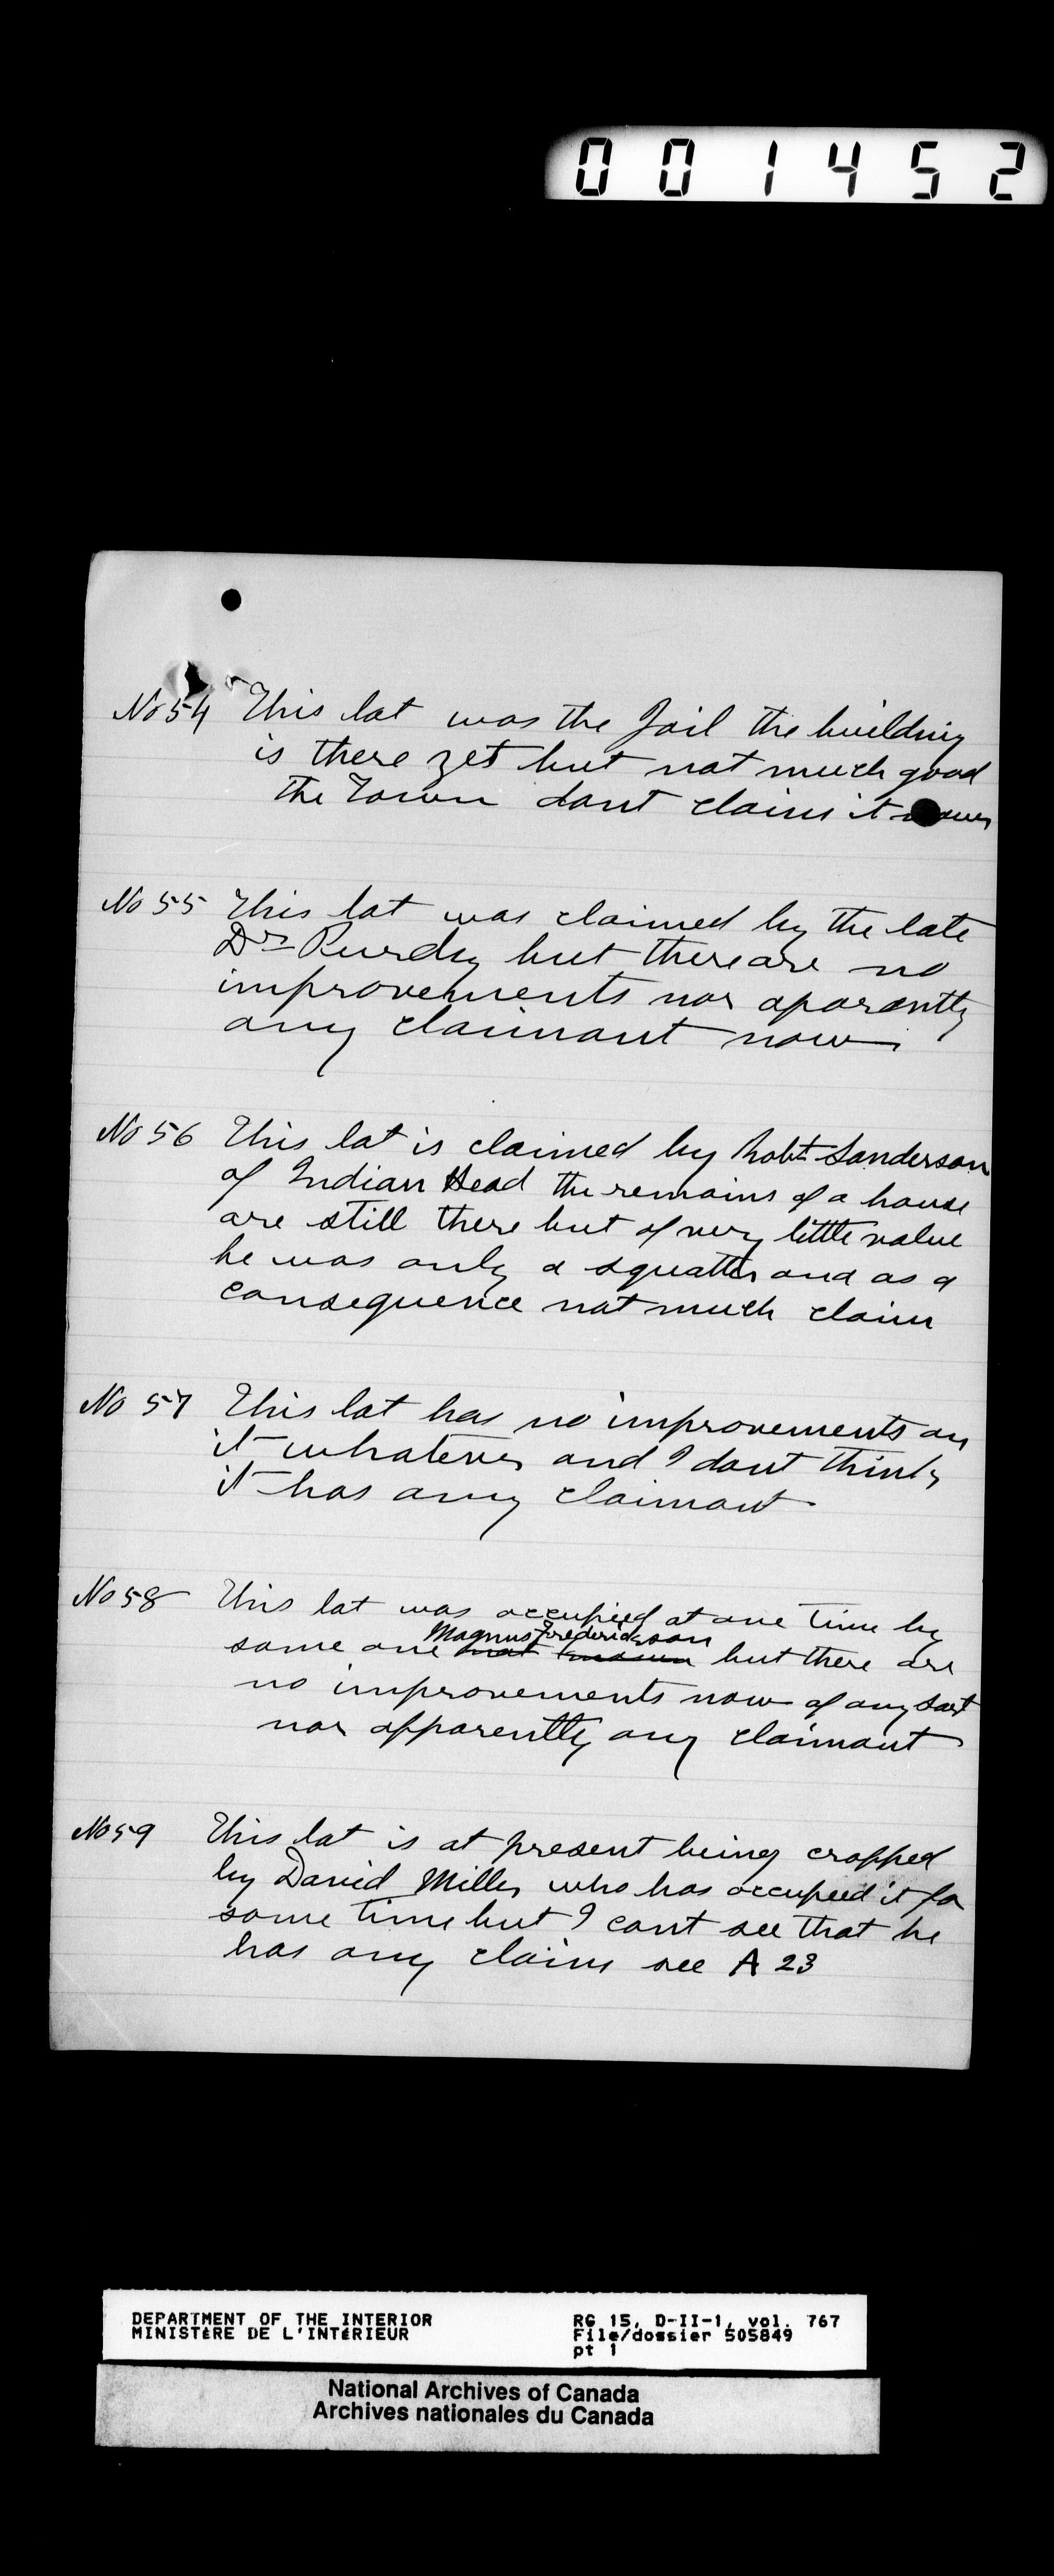 001452
No 54 This lot was the Jail the building
is there yet but not much good
the Town dont claim it
No 55 This lot was claimed by the late
Dr Purdy but there are no
improvements nor aparently
any claimant now
No 56 This lot is claimed by Robt Sanderson
of Indian Head the remains of a house
are still there but of very little value
he was only a squatter and as a
consequence not much claim
No 57 This lot has no improvements on
it whatever and I dont think
it has any claimant
No 58 This lot was occupied at one time by
Magnus Frederickson
some one not known but there are
no improvements now of any sort
nor apparently any claimant
No 59 This lot is at present being cropped
by David Miller who has occupied it for
some time but I cant see that he
has any claim see A 23
DEPARTMENT OF THE INTERIOR
MINISTÈRE DE L'INTÉRIEUR
RG 15, D-II-1, vol. 767
File/dossier 505849
pt 1
National Archives of Canada
Archives nationales du Canada